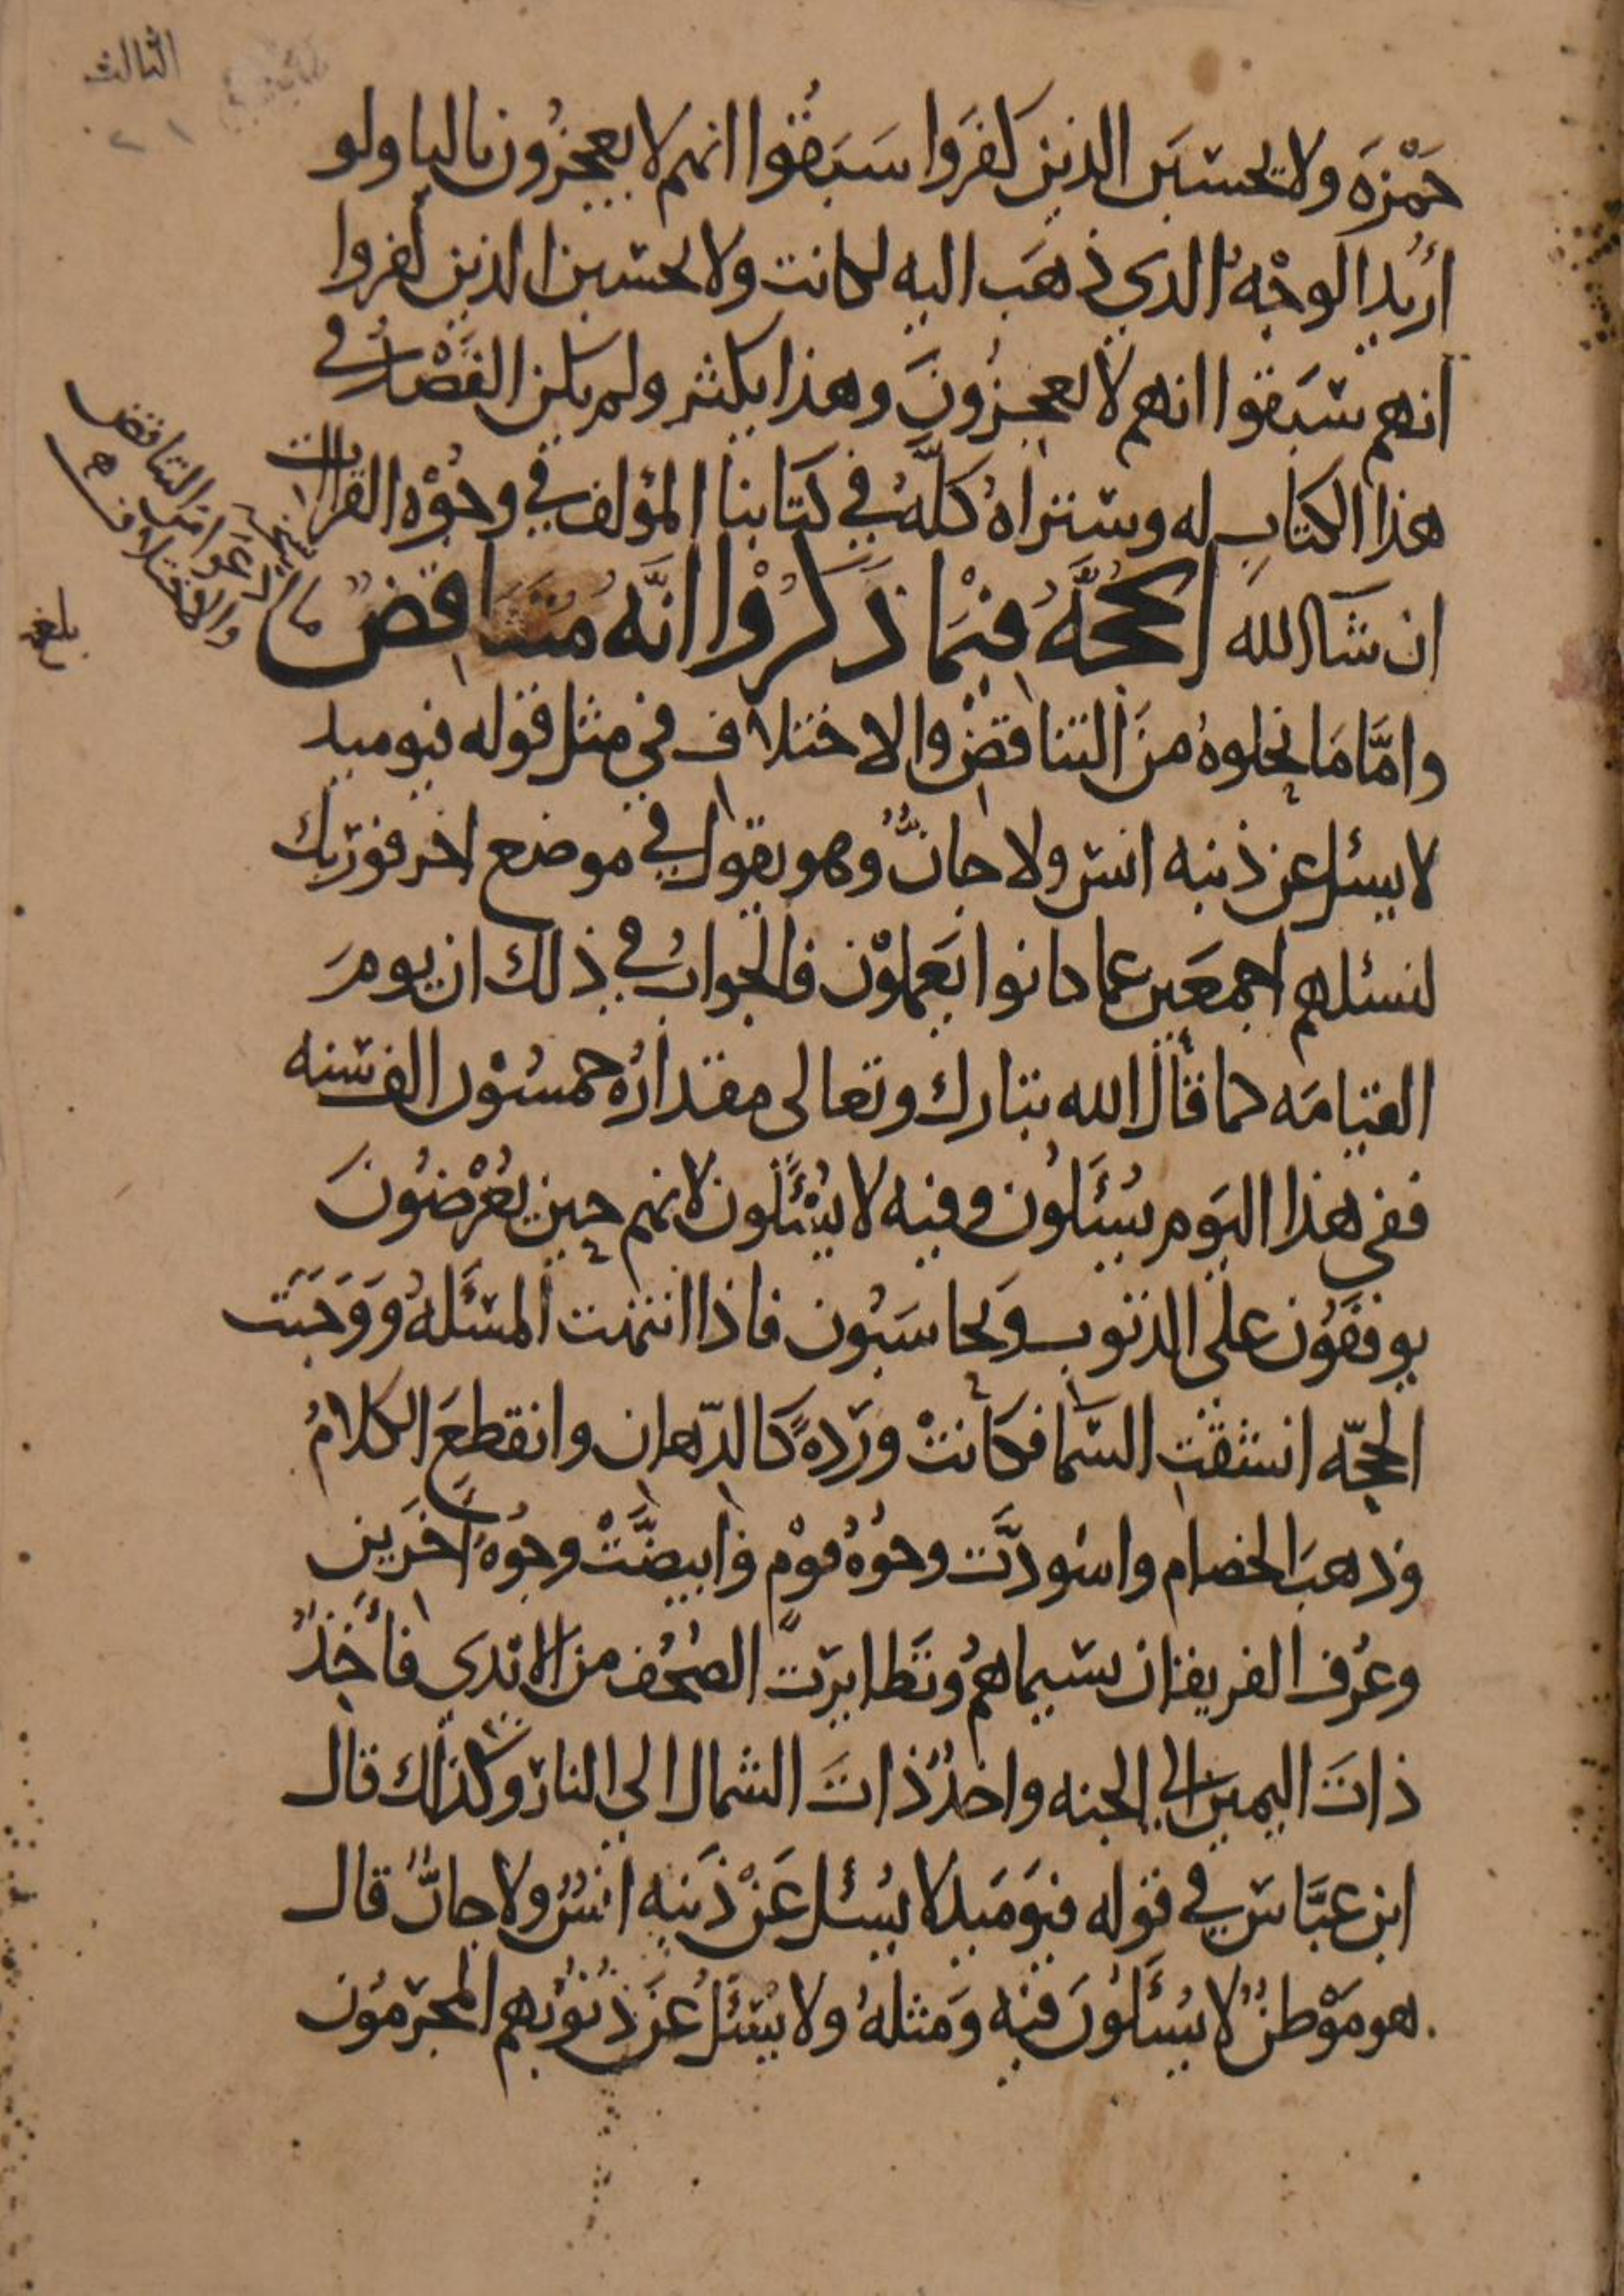 الثالث
حَمْزَة ولا يحسَبَن الذين كفَرَوا سَبَقُوا انهم لا يعجزُون باليا ولو
أُريدا لوجْهُ الذي ذهَب اليه لكانت ولا يحسبن الذين كفروا
انهم سَبَقوا انهم لا يعجزُونَ وهذا يكثر ولم يكن القَصْدُ في
هذا الكتاب له وستراهُ كلّهُ في كتابنا المؤلف في وجُوْه القراات
ان شآ الله الحُجَّةُ فيْمَا ذَكَرُوْا انَّهُ مُتَنَاقِضٌ
وامَّا مَا نحلوهُ منَ التناقضِ والاختلاف في مثل قوله فيوميد
لا يسئل عن ذنبه انس ولا جانٌّ وهو يقول في موضع اخر فوَربك
لنسئلهم اجمعَين عما كانوا يَعملوْن فالجوابُ في ذلك ان يومَ
القيامَه كما قالَ الله تبارك وتعالى مقدارُهُ خمسُوْن الف سَنه
ففي هذا اليَوم يُسْئَلُون وفيه لا يُسْئَلُون لانهم حين يُعْرَضُونَ
يوقفَوُن على الذنوب ويحاسَبُون فاذا انتهت المسْئلهُ وَوَجَبَت
الحجّه انشقت السَّما فكانتْ ورَدهً كالدّهان وانقطعَ الكلامُ
وذهبَ الخصام واسْودَّت وجُوْهُ قوْم وَابيضَّتْ وجُوْهُ اخَرَين
وعُرفَ الفريقان بسيماهُم وتَطايرَت الصُحُف من الايدي فأخذٌ
ذاتَ اليمين الى الجنه واخذٌ ذاتَ الشمال الى النار وكذلك قال
ابن عبَّاس في قوله فيَومَيد لا يُسْئل عَنْ ذَنبه انسٌ ولا جانٌّ قال
هو مَوْطنٌ لا يُسْئَلُونَ فيه وَمثلهُ ولا يُسْئلُ عَن ذنُوبهم المجرمُون
ما ادعوا من التناقض
والاختلاف
بلغ